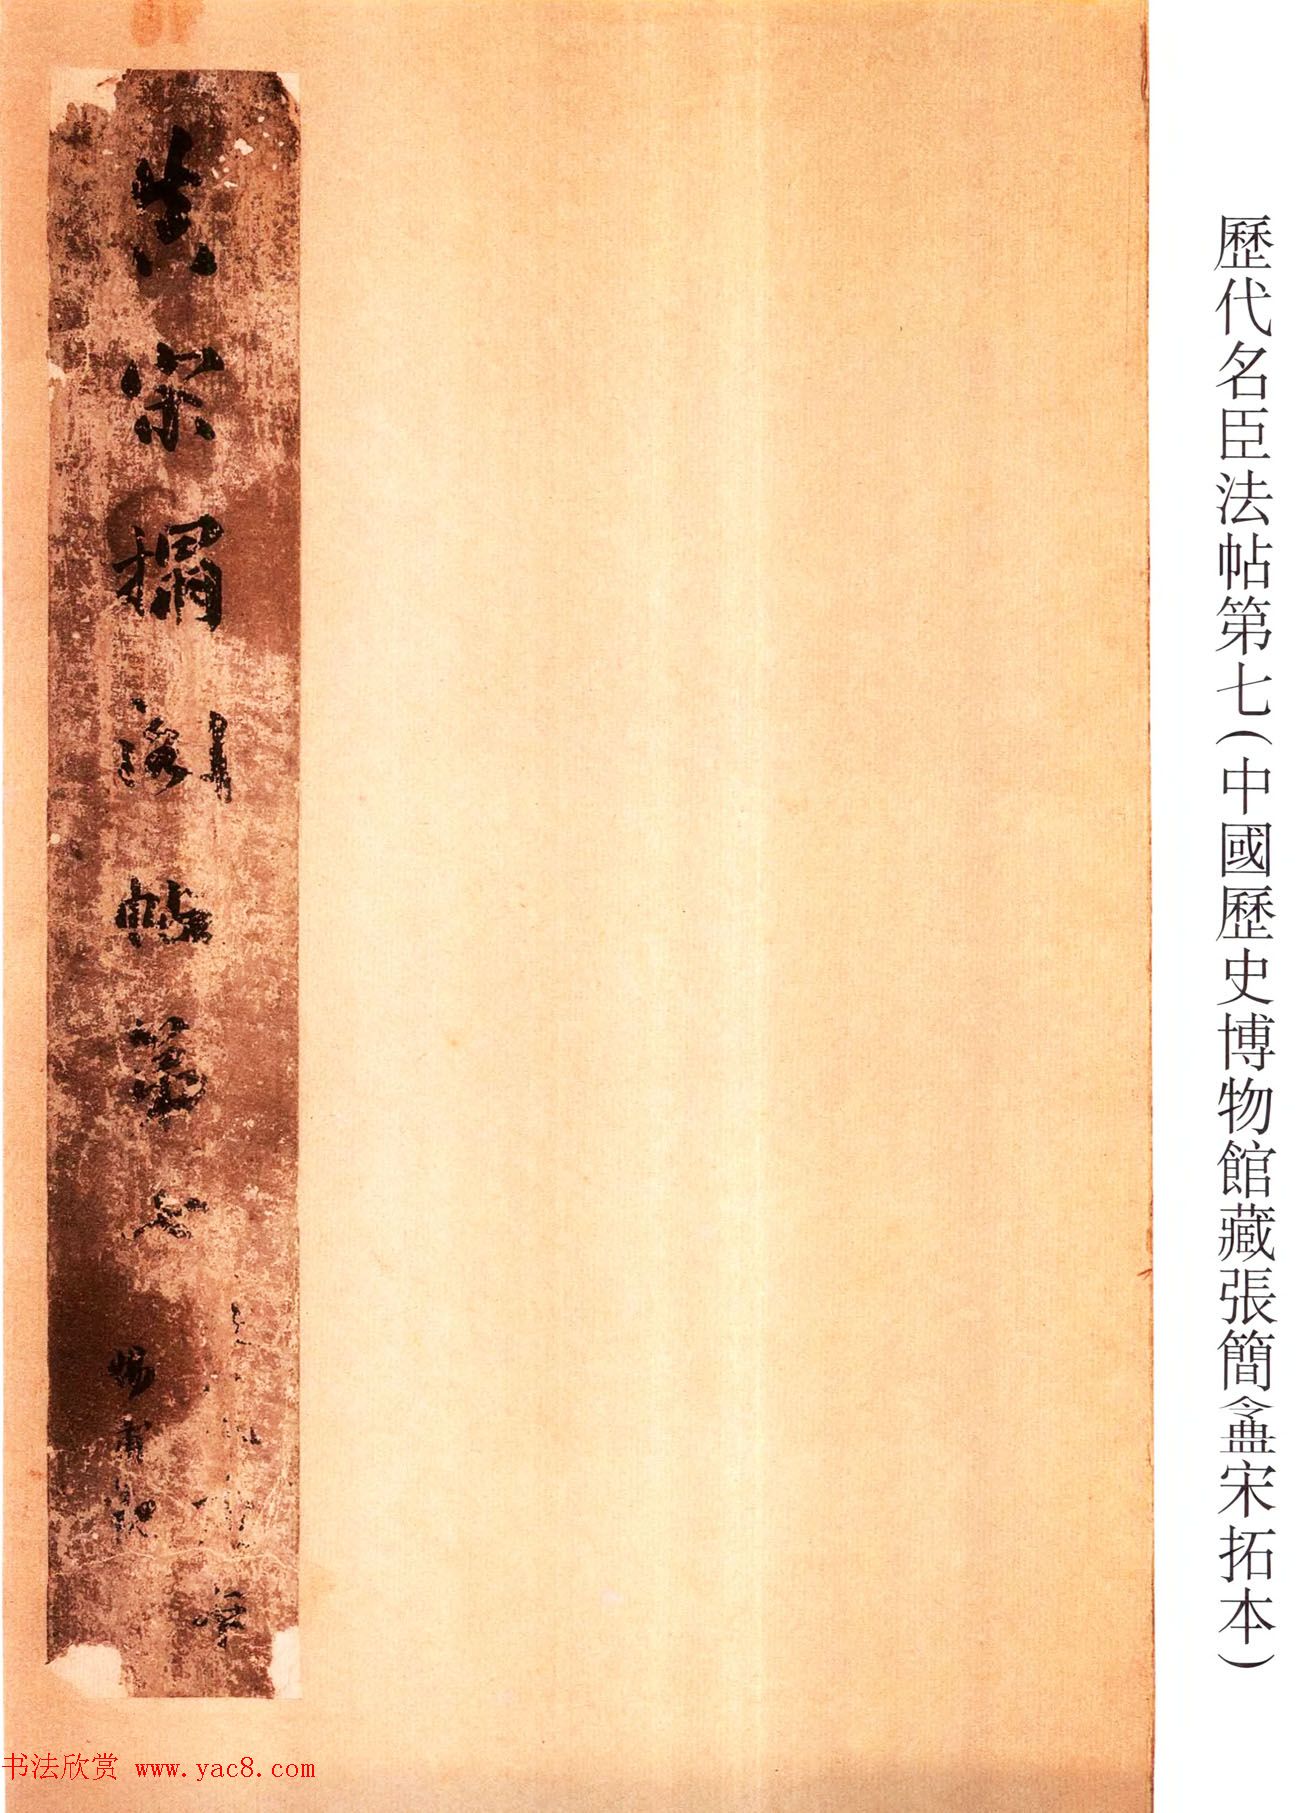 歷代名臣法帖第七(中國歷史博物館藏張簡盦宋拓本)
真宋搨閣帖第七
惕甫
书法欣赏 www.yac8.com